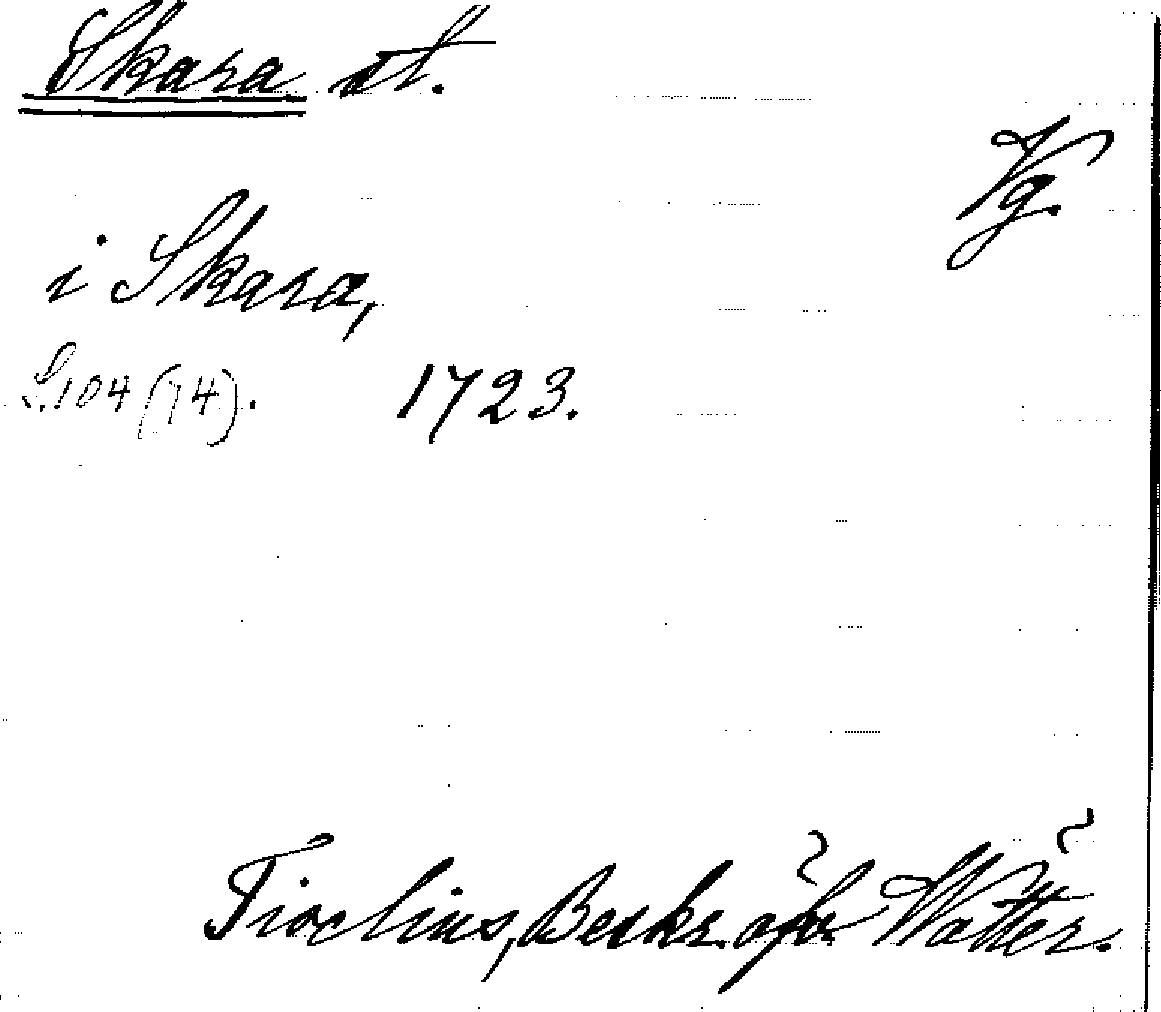 Skara st.
Vg.
i Skara,
S. 104 (74). 1723.
Tiselius, Beskr. öfv. Wätter.